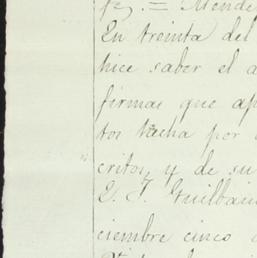 fz. = Mende
En treinta del
hice saber el a
firmas que ap
tos tacha por
critos, y de su
Q. J. Guilbau
ciembre cinco